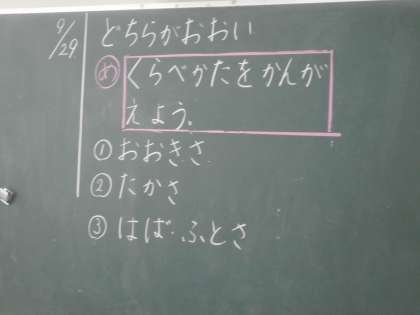 9/29
どちらがおおい
め くらべかたをかんが
えよう。
① おおきさ
② たかさ
③ はば・ふとさ